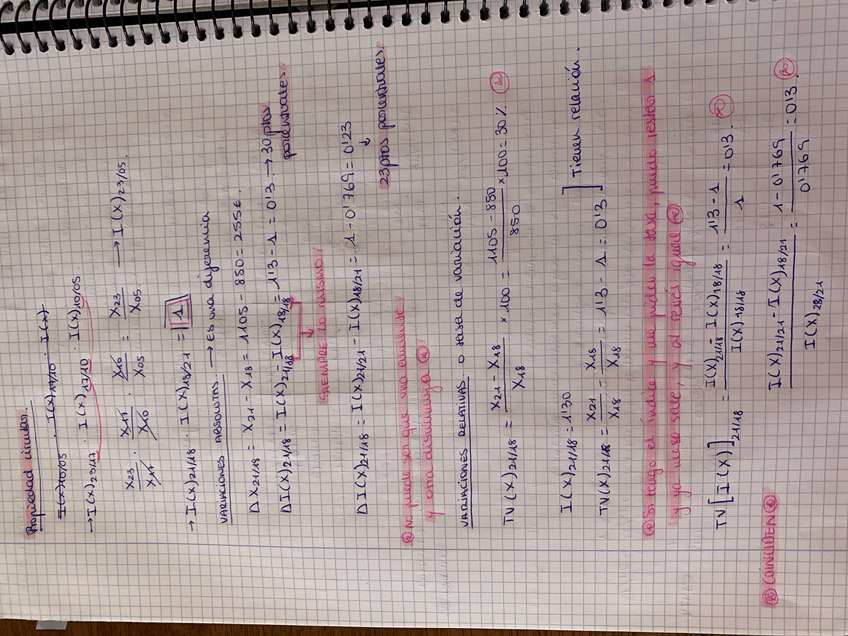 Propiedad circular.
I(X)10/05 · I(X)17/10 · I(X)
→ I(X)23/17 · I(X)17/10 · I(X)10/05
X23/X17 · X17/X10 · X10/X05 = X23/X05 → I(X)23/05.
→ I(X)21/18 · I(X)18/21 = 1
VARIACIONES ABSOLUTAS → Es una diferencia
ΔX21/18 = X21 - X18 = 1105 - 850 = 255€.
ΔI(X)21/18 = I(X)21/18 - I(X)18/18 = 1'3 - 1 = 0'3 → 30 ptos porcentuales.
SIEMPRE lo mismo.
ΔI(X)21/18 = I(X)21/21 - I(X)18/21 = 1 - 0'769 = 0'23
↓
23 ptos porcentuales.
No puede ser que una aumente
y otra disminuya
VARIACIONES RELATIVAS o tasa de variación.
TV(X)21/18 = X21 - X18 / X18 × 100 = 1105 - 850 / 850 × 100 = 30%.
I(X)21/18 = 1'30
TV(X)21/18 = X21/X18 - X18/X18 = 1'3 - 1 = 0'3 ] Tienen relación.
Si tengo el índice y me piden la tasa, puedo restar 1
y ya me sale, y al revés igual
TV[I(X)]21/18 = I(X)21/18 - I(X)18/18 / I(X)18/18 = 1'3 - 1 / 1 = 0'3.
I(X)21/21 - I(X)18/21 / I(X)28/21 = 1 - 0'769 / 0'769 = 0'3.
COINCIDEN